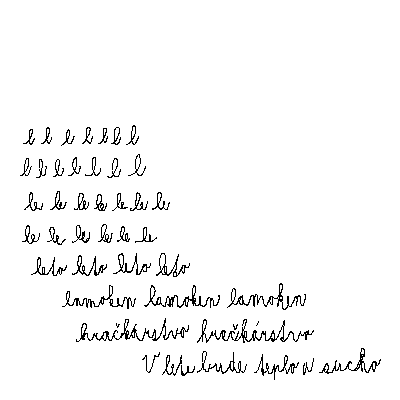 l l l l l l l
l l l l l l l
le le le le le le le
le le le le le le
leto leto leto leto
lamoken lamoken lamoken
hračkárstvo hračkárstvo
V lete bude teplo a sucho